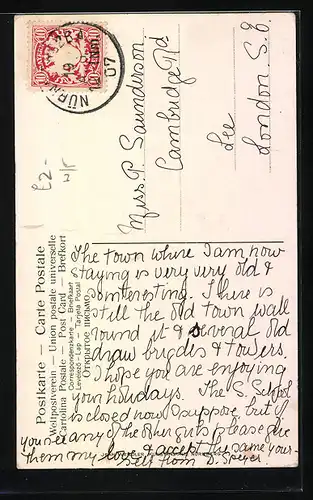 NÜRNB
07
10
10
£2-
Miss. P. Saunderson
Cambridge Rd
Lee
London. S.E.
Postkarte — Carte Postale
Weltpostverein — Union postale universelle
Cartolina Postale — Post Card — Brefkort
Correspondenzkarte — Briefkaart
Levelező-Lap — Tarjeta Postal
Открытое письмо.
The town where I am now
staying is very very old &
interesting. There is
still the old town wall
round it & several old
draw bridges & towers.
I hope you are enjoying
your holidays. The S. School
is closed now I suppose, but if
you see any of the other girls please give
them my love & accept the same your-
self from D. Speyer